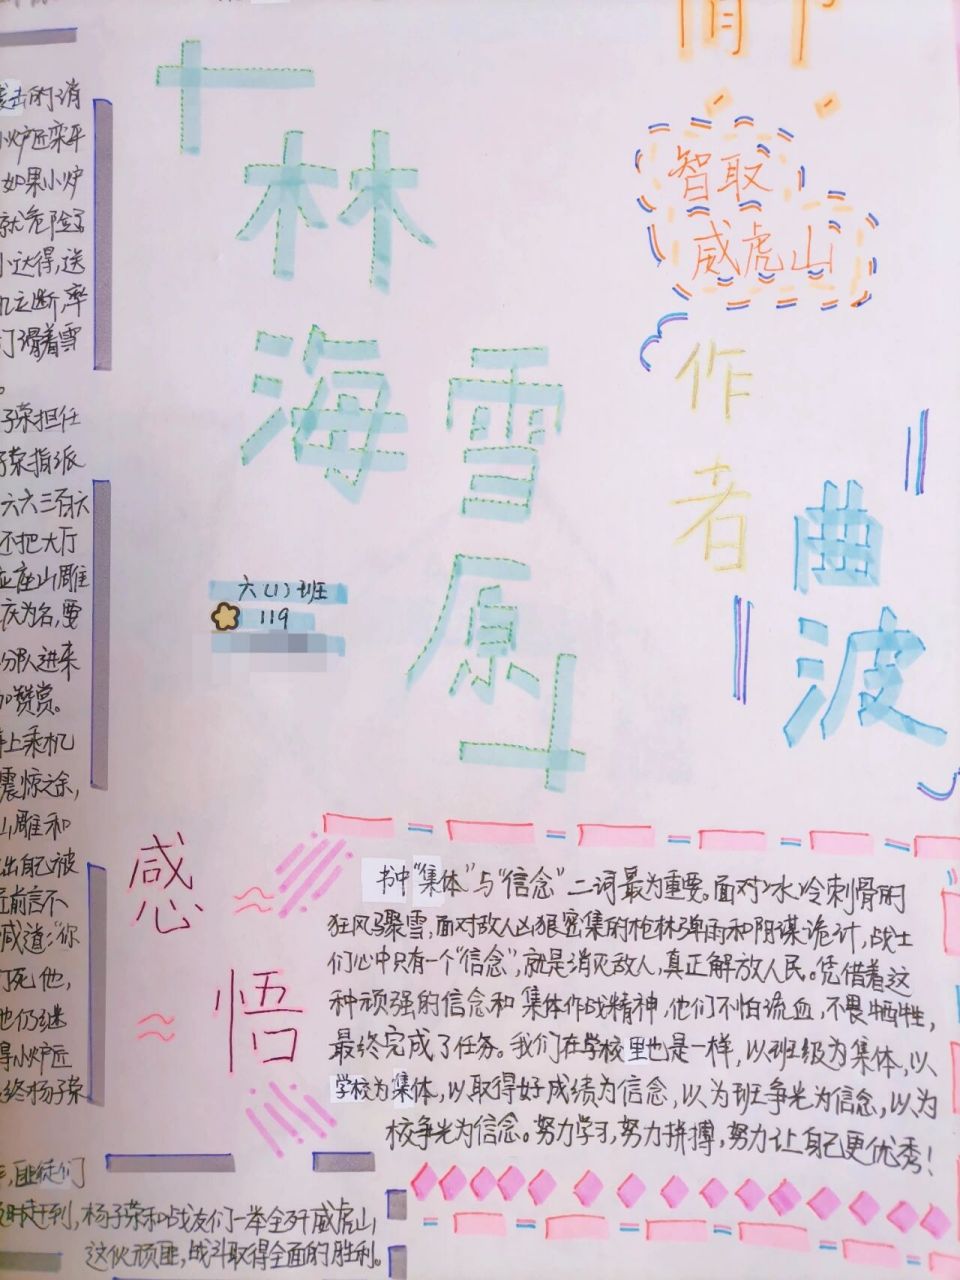 林
海
雪
原
智取
威虎山
作
者
曲
波
六(1)班
119
击的消
小炉匠栾平
如果小炉
就危险了
小达得,送
机立断,率
们滑着雪
子荣担任
子荣指派
六六三百六
还把大厅
应座山雕
庆为名,要
分队进来
加赞赏。
上乘机
震惊之余,
山雕和
出自己被
匠前言不
喊道:“你
们死他,
他仍继
得小炉匠
终杨子荣
,匪徒们
时赶到,杨子荣和战友们一举全歼威虎山
这伙顽匪,战斗取得全面的胜利。
感
悟
书中“集体”与“信念”二词最为重要。面对冰冷刺骨的
狂风骤雪,面对敌人凶狠密集的枪林弹雨和阴谋诡计,战士
们心中只有一个“信念”,就是消灭敌人,真正解放人民。凭借着这
种顽强的信念和集体作战精神,他们不怕流血,不畏牺牲,
最终完成了任务。我们在学校里也是一样,以班级为集体,以
学校为集体,以取得好成绩为信念,以为班争光为信念,以为
校争光为信念。努力学习,努力拼搏,努力让自己更优秀!